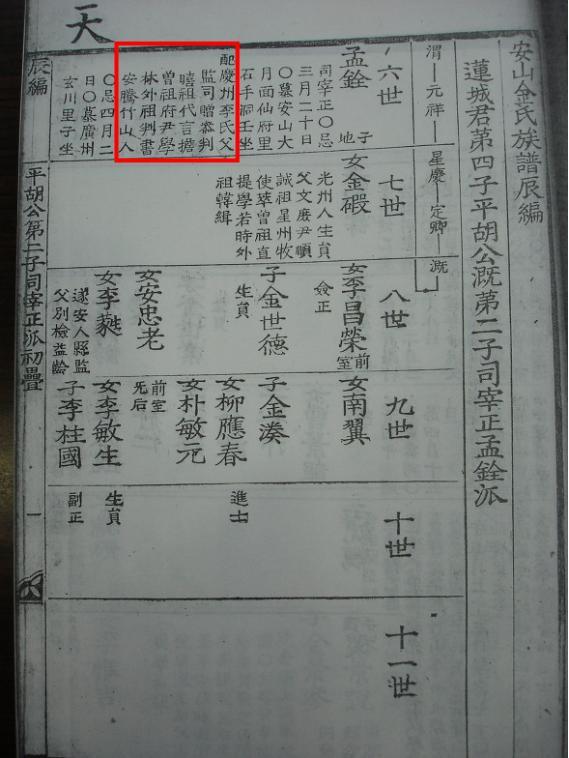 天
安山金氏族譜辰編
蓮城君第四子平胡公漑第二子司宰正孟銓派
渭―元祥―
星慶―定卿―
漑
六世
孟銓
子
地
司宰正〇忌
三月二十日
〇墓安山大
月面仙府里
石手洞壬坐
配慶州李氏父
監司贈叅判
曾祖府尹學
林外祖判書
安騰竹山人
〇忌四月二
日〇墓廣州
玄川里子坐
七世
女金碬
光州人生員
父文康尹順
誠祖星州牧
使萃曾祖直
提學若時外
祖韓緝
八世
女李昌榮
前
室
僉正
子金世德
生員
女安忠老
女李蕤
遂安人縣監
父別檢益齡
九世
女南翼
子金湊
女柳應春
進士
女朴敏元
前室
无后
女李敏生
生員
子李柱國
副正
十世
十一世
辰編
平胡公第二子司宰正派初疊
一